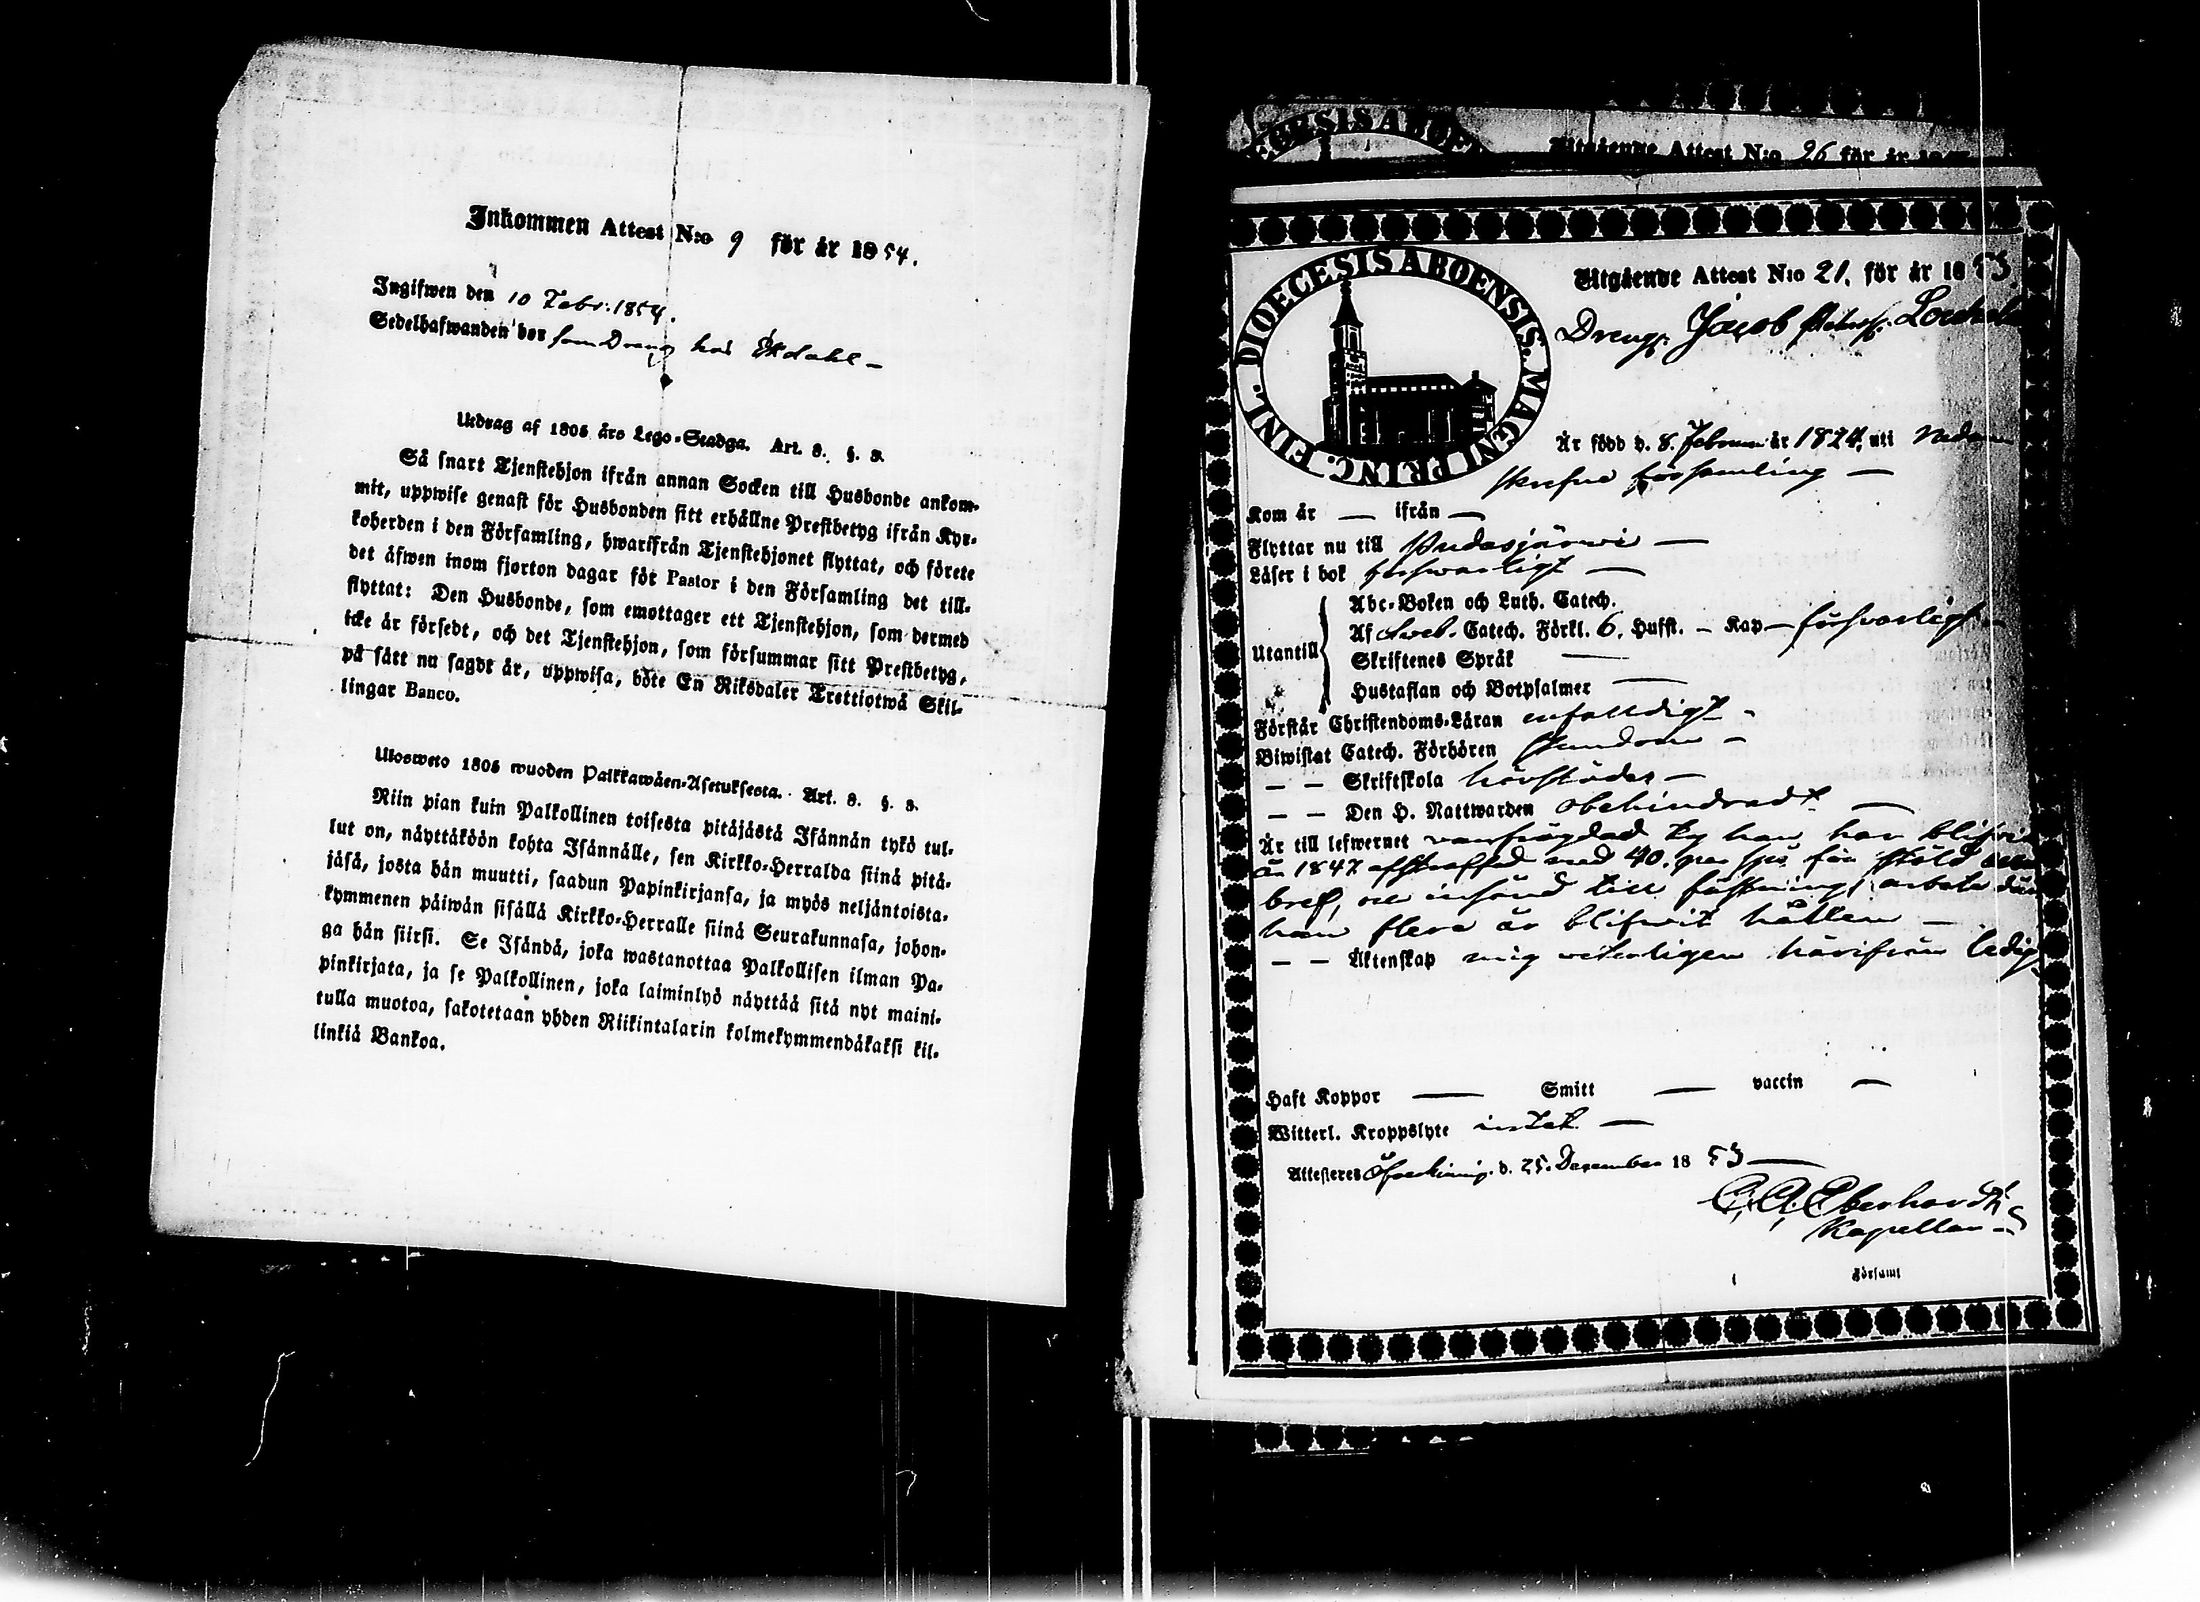 Inkommen Attest N:o 9 för år 1854.
Ingifwen den 10 Febr. 1854.
Sedelhafwanden bor som Dreng hos Ekdahl –
Utdrag af 1805 års Lego-Stadga. Art. 8. §. 8.
Så snart Tjenstehjon ifrån annan Socken till Husbonde ankom-
mit, uppwise genast för Husbonden sitt erhållne Prestbetyg ifrån Kyr-
koherden i den Församling, hwarifrån Tjenstehjonet flyttat, och förete
det äfwen inom fjorton dagar för Pastor i den Församling det till-
flyttat: Den Husbonde, som emottager ett Tjenstehjon, som dermed
icke är försedt, och det Tjenstehjon, som försummar sitt Prestbetyg,
på sätt nu sagdt är, uppwisa, böte En Riksdaler Trettiotwå Skil-
lingar Banco.
Ulosweto 1805 wuoden Palkkawäen-Asetuksesta. Art. 8. §. 8.
Niin pian kuin Palkollinen toisesta pitäjästä Isännän tykö tul-
lut on, näyttäköön kohta Isännälle, sen Kirkko-Herralda siinä pitä-
jäsä, josta hän muutti, saadun Papinkirjansa, ja myös neljäntoista-
kymmenen päiwän sisällä Kirkko-Herralle siinä Seurakunnasa, johon-
ga hän siirsi. Se Isändä, joka wastanottaa Palkollisen ilman Pa-
pinkirjata, ja se Palkollinen, joka laiminlyö näyttää sitä nyt maini-
tulla muotoa, sakotetaan yhden Riikintalarin kolmekymmendäkaksi kil-
linkiä Bankoa.
Utgående Attest N:o 96 för år
FINL. DIOECESIS ABOENSIS. MAGNI PRINC.
Utgående Attest N:o 21. för år 1853.
Drengn. Jacob
Är född d. 8. Februari år 1824. uti Nedan
skrefne församling –
Kom år — ifrån —
Flyttar nu till Pudasjärwi —
Läser i bok försvarligt —
Abc-Boken och Luth. Catech.
Af Sveb. Catech. Förkl. 6. Hufst. – Kap – försvarligt –
Utantill
Skriftenes Språk —
Hustaflan och Botpsalmer —
Förstår Christendoms-Läran enfalldigt –
Biwistat Catech. Förhören stundom –
— — Skriftskola härstädes –
— — Den H. Nattwarden obehindradt —
Är till lefwernet vanfrägdad ty han har blifvit
år 1847 afstraffad med 40. par spö för stöld
bref, och insänd till fästnings arbete där
han flera år blifwit hållen —
— — Äktenskap mig veterligen härifrån ledig
Haft Koppor — Smitt — vaccin —
Witterl. Kroppslyte intet —
Attesteres d. 25. December 1853 —
C. A. Eberhardt
Kapellan –
Församl